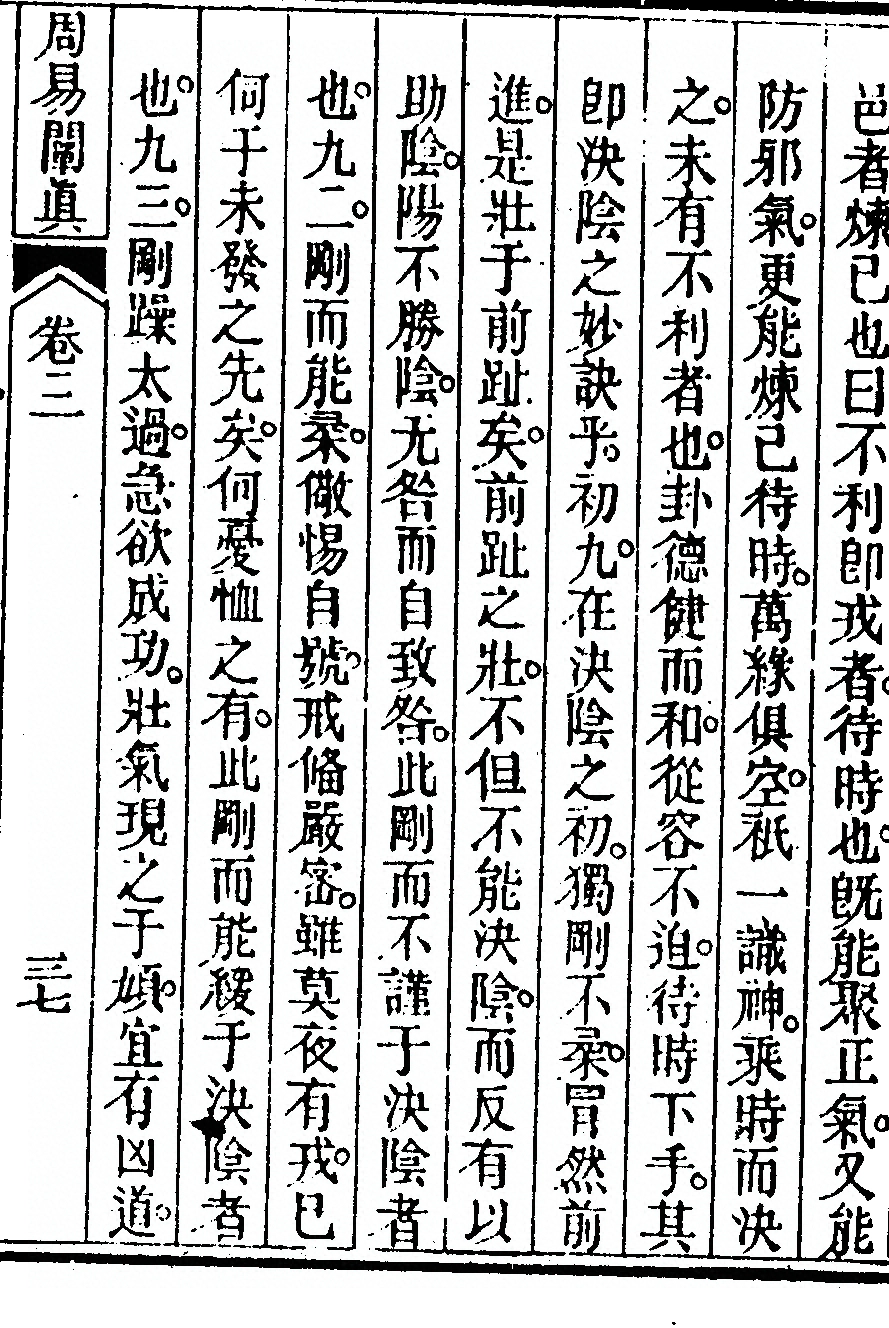 邑者煉己也曰不利卽戎者。待時也。旣能聚正氣。又能
防邪氣。更能煉己待時。萬緣俱空。祇一識神。乘時而決
之。未有不利者也。卦德健而和。從容不迫。待時下手。其
卽決陰之妙訣乎。初九。在決陰之初。獨剛不柔。冒然前
進。是壯于前趾矣。前趾之壯。不但不能決陰。而反有以
助陰。陽不勝陰。无咎而自致咎。此剛而不謹于決陰者
也。九二。剛而能柔。儆惕自號。戒備嚴密。雖莫夜有戎。已
伺于未發之先矣。何憂恤之有。此剛而能緩于決陰者
也。九三。剛躁太過。急欲成功。壯氣現之于頄。宜有凶道。
周易闡眞
卷三
三七